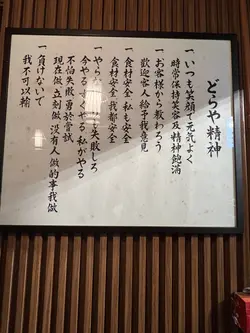 どらや精神
一 いつも笑顔で元気よく
時常保持笑容及精神飽滿
一 お客様から教わろう
歡迎客人給予我意見
一 食材安全 私も安全
食材安全 我都安全
一 やら
失敗しろ
今やる
やる 私がやる
不怕失敗 勇於嘗試
現在做 立刻做 没有人做的事我做
一 負けないで
我不可以輸